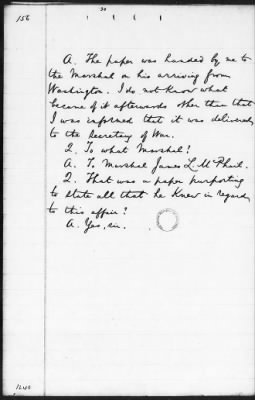 156
30
A. The paper was handed by me to
the Marshal on his arriving from
Washington. I do not know what
became of it afterwards other than that
I was informed that it was delivered
to the Secretary of War.
Q. To what Marshal?
A. To Marshal James L. McPhail.
Q. That was a paper purporting
to state all that he knew in regard
to this affair?
A. Yes, sir.